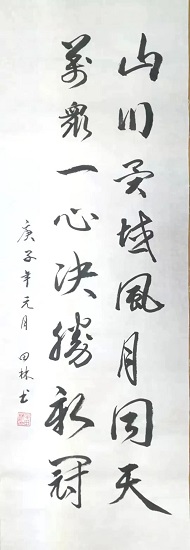 山川異域風月同天
萬眾一心決勝新冠
庚子年元月 田林书